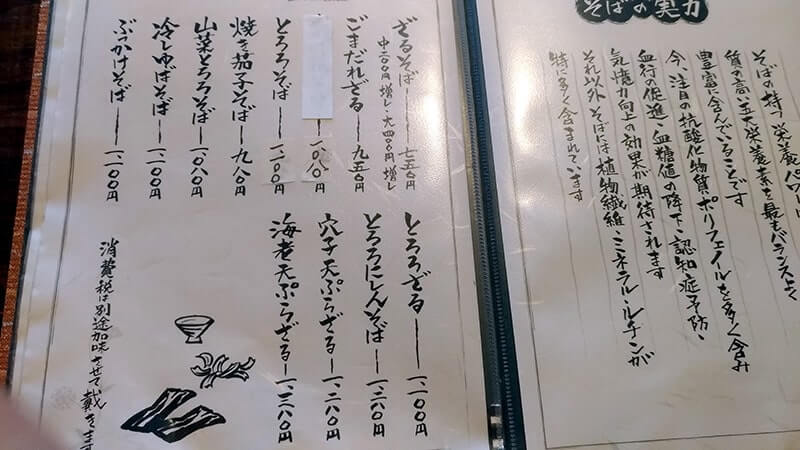 そばの実力
そばの持つ栄養パワーは
質の高い五大栄養素を最もバランスよく
豊富に含んでいることです
今、注目の抗酸化物質ポリフェノールを多く含み
血行の促進、血糖値の降下、認知症予防、
気憶力向上の効果が期待されます
それ以外、そばには植物繊維・ミネラル・ルチンが
特に多く含まれています
ざるそば 七五〇円
中二〇〇円増し・大四〇〇円増し
ごまだれざる 九五〇円
一、〇八〇円
とろろそば 一、一〇〇円
焼き茄子そば 九八〇円
山菜とろろそば 一、〇八〇円
冷しゆばそば 一、一〇〇円
ぶっかけそば 一、一〇〇円
とろろざる 一、一〇〇円
とろろにしんそば 一、二八〇円
穴子天ぷらざる 一、二八〇円
海老天ぷらざる 一、二八〇円
消費税は別途加味させて戴きます